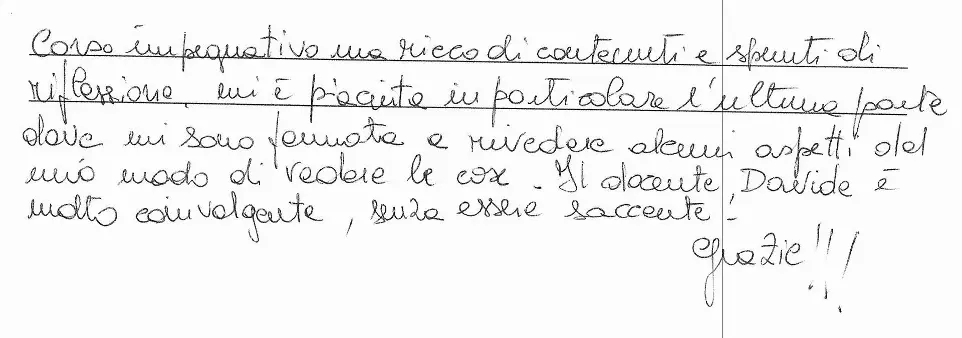 Corso impegnativo ma ricco di contenuti e spunti di
riflessione, mi è piaciuta in particolare l'ultima parte
dove mi sono fermata a rivedere alcuni aspetti del
mio modo di vedere le cose. Il docente, Davide è
molto coinvolgente, senza essere saccente.
Grazie!!!